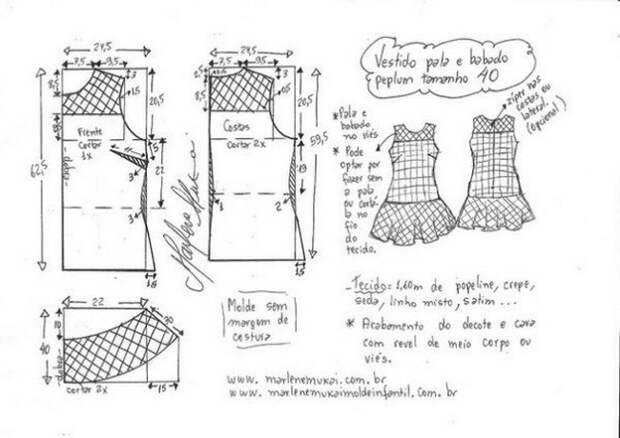 Vestido pala e babado
peplum tamanho 40
24,5
7,5
9,5
8,5
3
1,5
20,5
Frente
Cortar
1x
dobra
5
22
3
3
62,5
1,5
24,5
7,5
9,5
2,5
1,5
3
0,5
8,5
20,5
Costas
Cortar 2x
59,5
19
1
2
1,5
Marlene Mukai
* Pala e
babado
no
viés
* Pode
optar por
fazer sem
a pala
ou cortá-
la no
fio
do
tecido.
zíper nas
costas ou
lateral.
(opcional)
22
10
30
40
dobra
cortar 2x
15
Molde sem
margem de
costura
- Tecido = 1,60m de popeline, crepe,
seda, linho misto, satim ...
* Acabamento do decote e cava
com revel de meio corpo ou
viés.
www.marlenemukai.com.br
www.marlenemukaimoldeinfantil.com.br